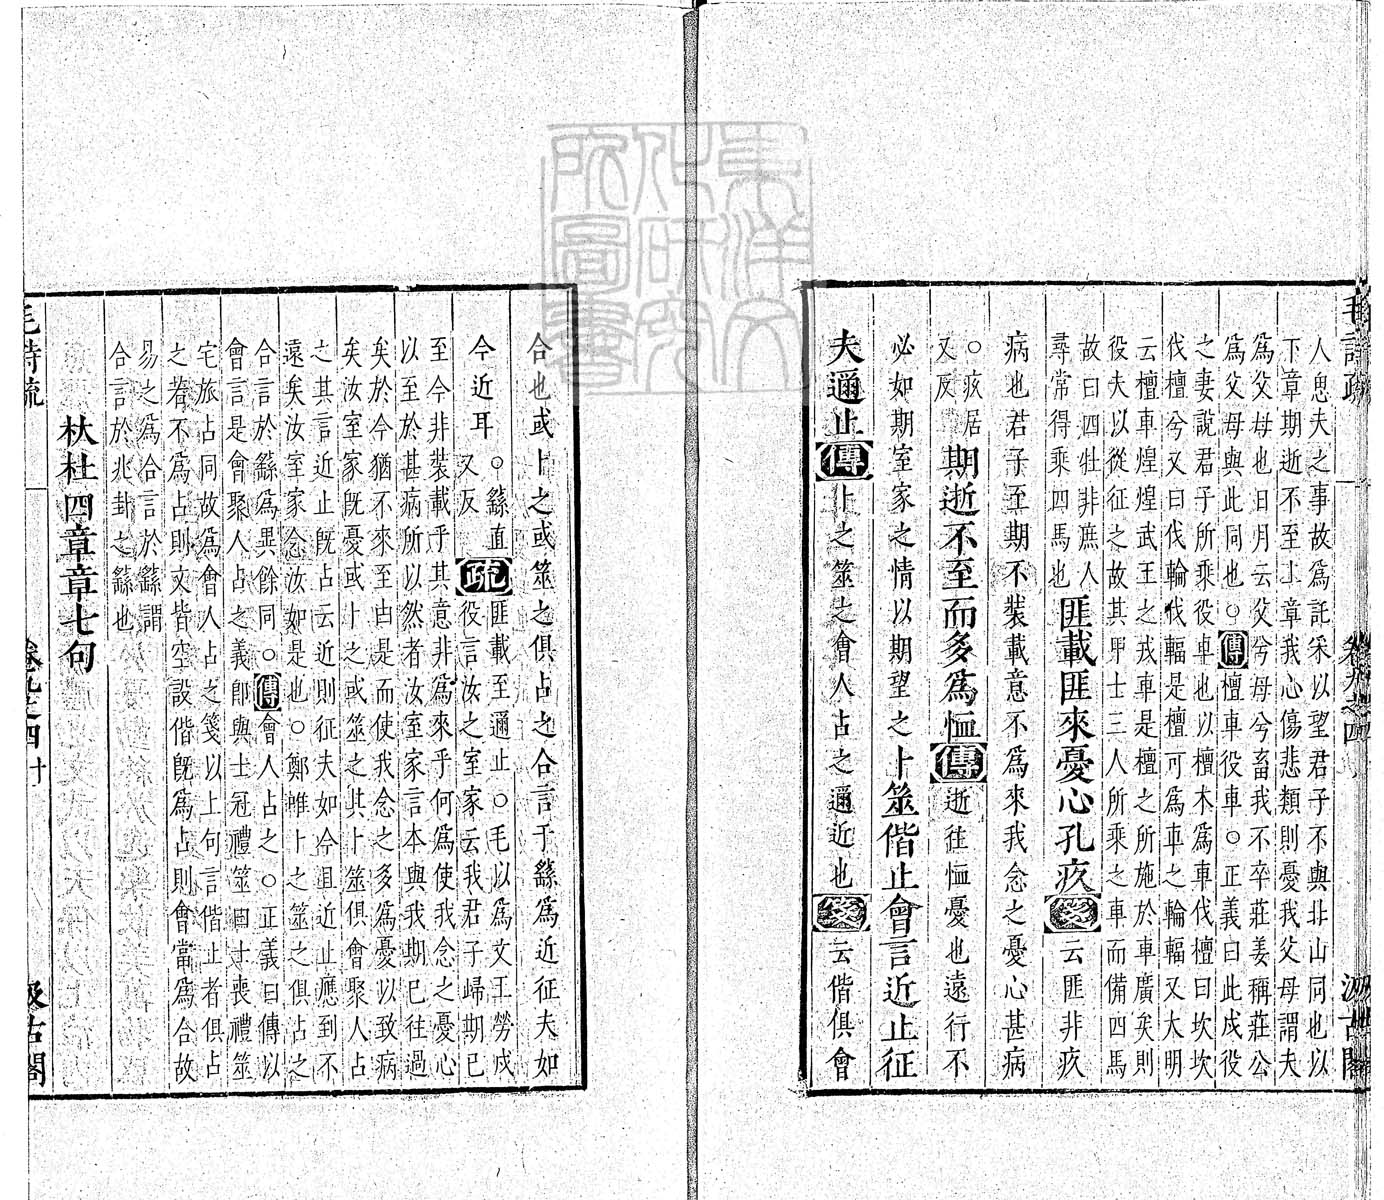 毛詩疏 卷九之四 汲古閣
人思夫之事故爲託采以望君子不與非山同也以
下章期逝不至上章我心傷悲類則憂我父母謂夫
爲父母也日月云父兮母兮畜我不卒莊姜稱莊公
爲父母與此同也○傳檀車役車○正義曰此戍役
之妻說君子所乘役車也以檀木爲車伐檀曰坎坎
伐檀兮又曰伐輪伐輻是檀可爲車之輪輻又大明
云檀車煌煌武王之戎車是檀之所施於車廣矣則
役夫以從征之故其甲士三人所乘之車而備四馬
故曰四牡非庶人
尋常得乘四馬也
匪載匪來憂心孔疚箋云匪非疚
病也君子至期不裝載意不爲來我念之憂心甚病
○疚居
又反
期逝不至而多爲恤傳逝往恤憂也遠行不
必如期室家之情以期望之卜筮偕止會言近止征
夫邇止傳卜之筮之會人占之邇近也箋云偕俱會
合也或卜之或筮之俱占之合言于繇爲近征夫如
今近耳
○繇直
又反
疏
匪載至邇止○毛以爲文王勞戍
役言汝之室家云我君子歸期已
至今非裝載乎其意非爲來乎何爲使我念之憂心
以至於甚病所以然者汝室家言本與我期已往過
矣於今猶不來至由是而使我念之多爲憂以致病
矣汝室家既憂或卜之或筮之其卜筮俱會聚人占
之其言近止既占云近則征夫如今且近止應到不
遠矣汝室家念汝如是也○鄭唯卜之筮之俱占之
合言於繇爲異餘同○傳會人占之○正義曰傳以
會言是會聚人占之義即與士冠禮筮日士喪禮筮
宅旅占同故爲會人占之箋以上句言偕止者俱占
之著不爲占則文皆空設偕既爲占則會當爲合故
易之爲合言於繇謂
合言於兆卦之繇也
杕杜四章章七句
毛詩疏 卷九之四 十 汲古閣
東洋文化研究所圖書